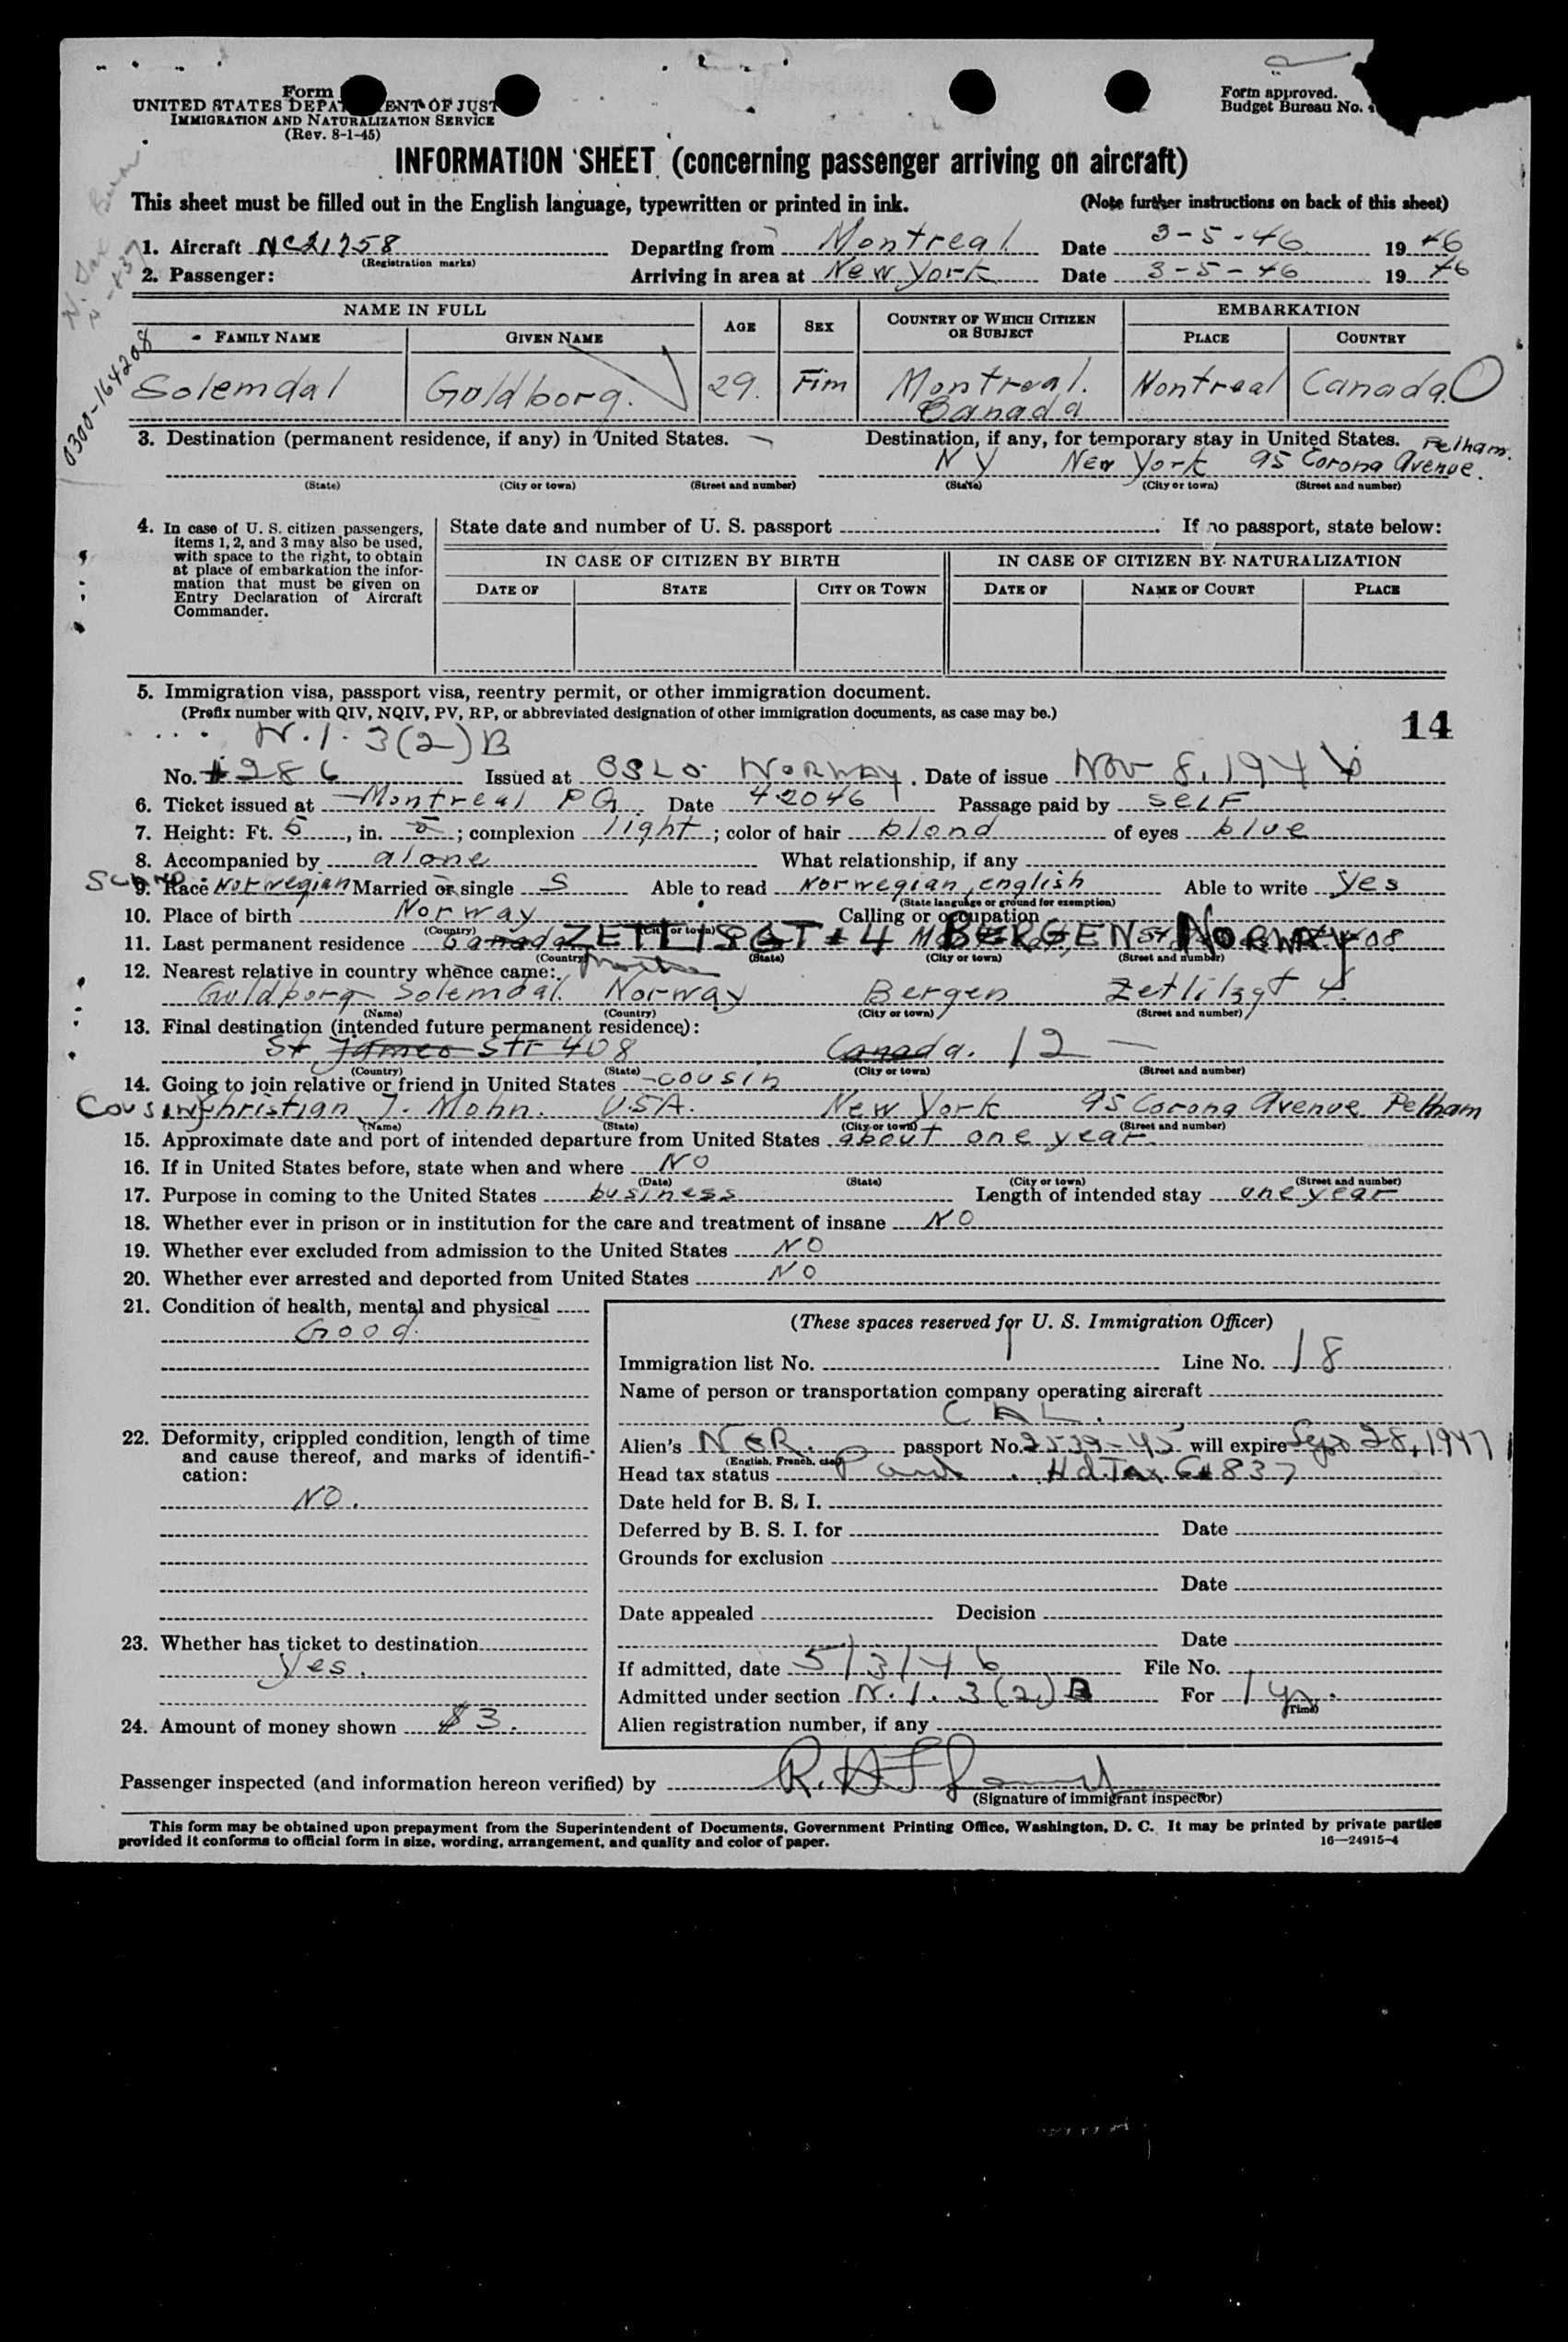 Form
UNITED STATES DEPA ENT OF JUST
IMMIGRATION AND NATURALIZATION SERVICE
(Rev. 8-1-45)
Form approved.
Budget Bureau No.
INFORMATION SHEET (concerning passenger arriving on aircraft)
This sheet must be filled out in the English language, typewritten or printed in ink. (Note further instructions on back of this sheet)
1. Aircraft NC21758 Departing from Montreal Date 3-5-46 19 46
(Registration marks)
2. Passenger: Arriving in area at New York Date 3-5-46 19 46
0300-164208
NAME IN FULL AGE SEX COUNTRY OF WHICH CITIZEN OR SUBJECT EMBARKATION
FAMILY NAME GIVEN NAME PLACE COUNTRY
Solemdal Guldborg. 29. Fim Montreal. Canada Montreal Canada.
3. Destination (permanent residence, if any) in United States. Destination, if any, for temporary stay in United States. Pelham.
N Y New York 95 Corona Avenue.
(State) (City or town) (Street and number) (State) (City or town) (Street and number)
4. In case of U. S. citizen passengers, items 1, 2, and 3 may also be used, with space to the right, to obtain at place of embarkation the information that must be given on Entry Declaration of Aircraft Commander.
State date and number of U. S. passport If no passport, state below:
IN CASE OF CITIZEN BY BIRTH IN CASE OF CITIZEN BY NATURALIZATION
DATE OF STATE CITY OR TOWN DATE OF NAME OF COURT PLACE
5. Immigration visa, passport visa, reentry permit, or other immigration document.
(Prefix number with QIV, NQIV, PV, RP, or abbreviated designation of other immigration documents, as case may be.)
14
N.I. 3(2)B
No. #286 Issued at OSLO NORWAY. Date of issue Nov 8, 194
6. Ticket issued at Montreal PG Date 4.2046 Passage paid by self
7. Height: Ft. 5, in. 5; complexion light; color of hair blond of eyes blue
8. Accompanied by alone What relationship, if any
9. Race Norwegian Married or single S Able to read Norwegian, english Able to write yes
(State language or ground for exemption)
10. Place of birth Norway Calling or occupation
(Country) (City or town)
11. Last permanent residence Canada ZETLISGT 4 BERGEN NORWAY 408
(Country) (State) (City or town) (Street and number)
12. Nearest relative in country whence came:
Guldborg Solemdal. Norway Bergen Zetlilzgt 4.
(Name) (Country) (City or town) (Street and number)
13. Final destination (intended future permanent residence):
St James Str 408 Canada. 12 —
(Country) (State) (City or town) (Street and number)
14. Going to join relative or friend in United States cousin
Cousin Christian J. Mohn. U.S.A. New York 95 Corona Avenue Pelham
(Name) (State) (City or town) (Street and number)
15. Approximate date and port of intended departure from United States about one year
16. If in United States before, state when and where NO
(Date) (State) (City or town) (Street and number)
17. Purpose in coming to the United States business Length of intended stay one year
18. Whether ever in prison or in institution for the care and treatment of insane NO
19. Whether ever excluded from admission to the United States NO
20. Whether ever arrested and deported from United States NO
21. Condition of health, mental and physical
Good.
22. Deformity, crippled condition, length of time and cause thereof, and marks of identification:
NO.
23. Whether has ticket to destination
Yes.
24. Amount of money shown $3.
(These spaces reserved for U. S. Immigration Officer)
Immigration list No. Line No. 18
Name of person or transportation company operating aircraft
CAL.
Alien's NOR. passport No. 2539-45 will expire Sept 28, 1947
(English, French, etc.)
Head tax status Paid. Hd.Tax 837
Date held for B. S. I.
Deferred by B. S. I. for Date
Grounds for exclusion
Date
Date appealed Decision
Date
If admitted, date 5/3/46 File No.
Admitted under section N.I. 3(2)B For 1 yr.
(Time)
Alien registration number, if any
Passenger inspected (and information hereon verified) by
(Signature of immigrant inspector)
This form may be obtained upon prepayment from the Superintendent of Documents, Government Printing Office, Washington, D. C. It may be printed by private parties
provided it conforms to official form in size, wording, arrangement, and quality and color of paper. 16—24915-4